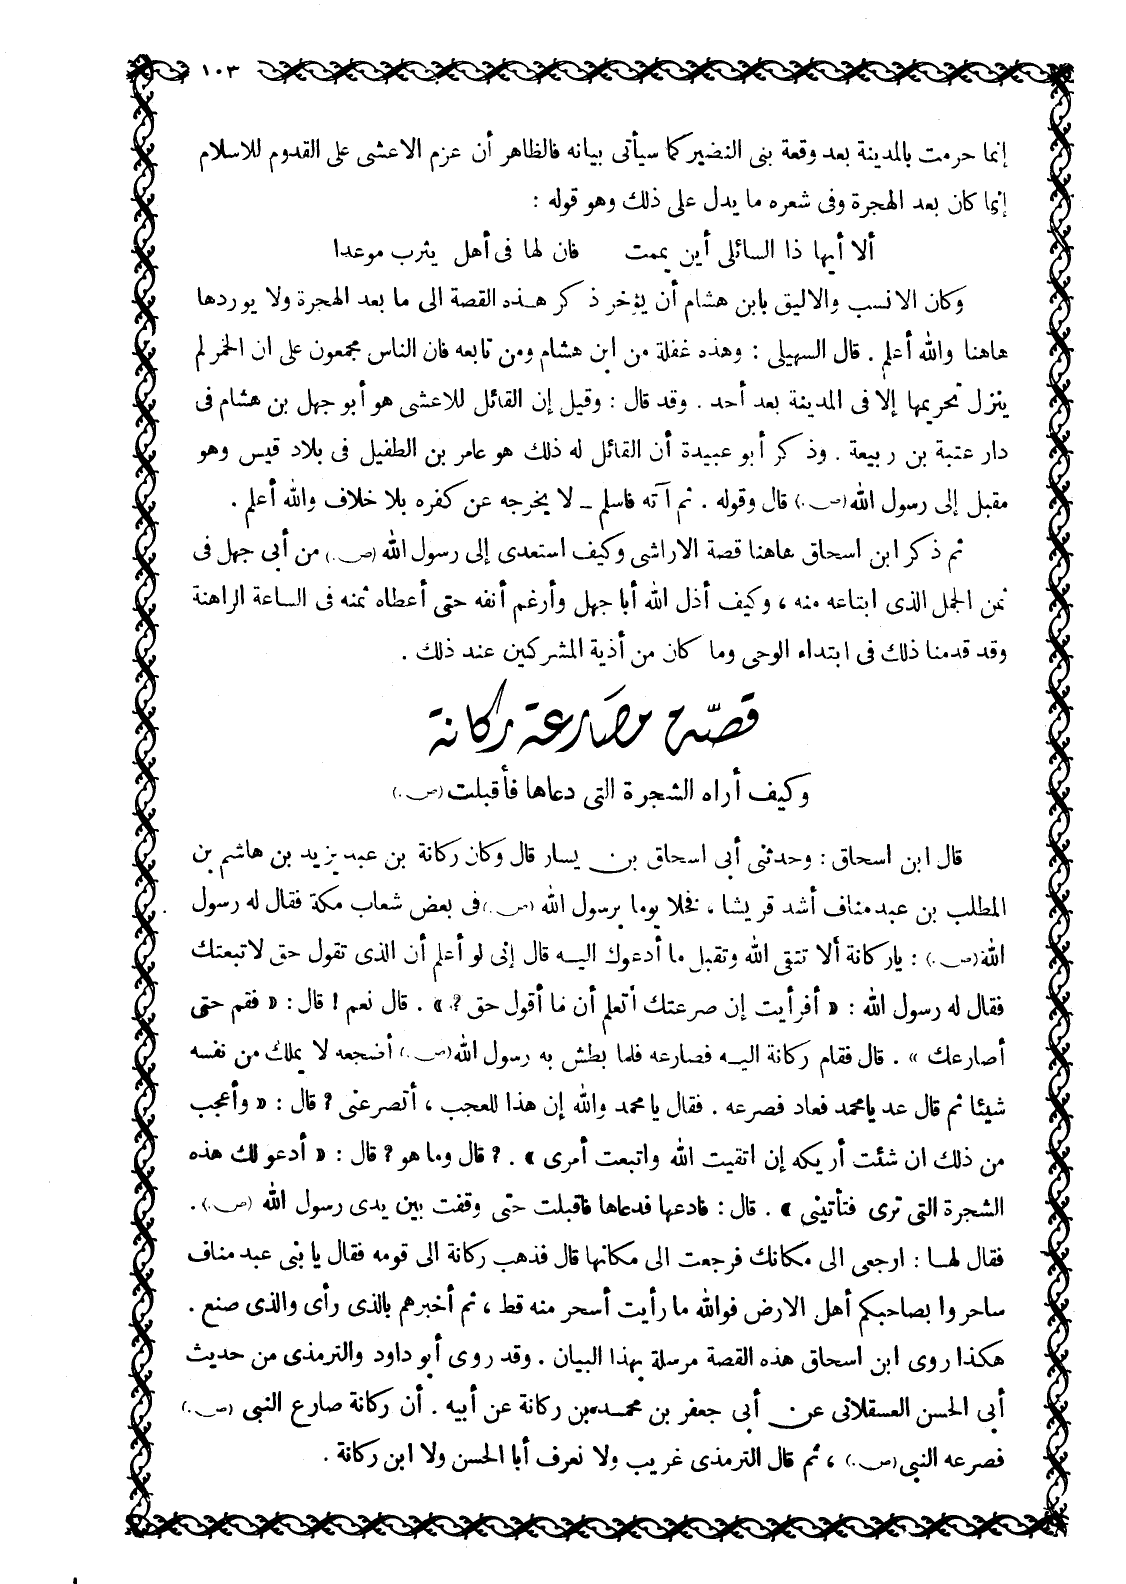 ١٠٣
إنما حرمت بالمدينة بعد وقعة بنى النضير كما سيأتى بيانه فالظاهر أن عزم الاعشى على القدوم للاسلام
إنما كان بعد الهجرة وفى شعره ما يدل على ذلك وهو قوله :
ألا أيها ذا السائلى أين يممت فان لها فى أهل يثرب موعدا
وكان الانسب والاليق بابن هشام أن يؤخر ذكر هذه القصة الى ما بعد الهجرة ولا يوردها
هاهنا والله أعلم . قال السهيلى : وهذه غفلة من ابن هشام ومن تابعه فان الناس مجمعون على ان الخمر لم
ينزل تحريمها إلا فى المدينة بعد أحد . وقد قال : وقيل إن القائل للاعشى هو أبو جهل بن هشام فى
دار عتبة بن ربيعة . وذكر أبو عبيدة أن القائل له ذلك هو عامر بن الطفيل فى بلاد قيس وهو
مقبل إلى رسول الله (ص.) قال وقوله . ثم آته فاسلم ــ لا يخرجه عن كفره بلا خلاف والله أعلم .
ثم ذكر ابن اسحاق هاهنا قصة الاراشى وكيف استعدى إلى رسول الله (ص.) من أبى جهل فى
ثمن الجمل الذى ابتاعه منه ، وكيف أذل الله أبا جهل وأرغم أنفه حتى أعطاه ثمنه فى الساعة الراهنة
وقد قدمنا ذلك فى ابتداء الوحى وما كان من أذية المشركين عند ذلك .
قصّة مصَارعة ركانة
وكيف أراه الشجرة التى دعاها فأقبلت (ص.)
قال ابن اسحاق : وحدثنى أبى اسحاق بن يسار قال وكان ركانة بن عبد يزيد بن هاشم بن
المطلب بن عبد مناف أشد قريشا ، فخلا يوما برسول الله (ص.) فى بعض شعاب مكة فقال له رسول
الله (ص.) : ياركانة ألا تتقى الله وتقبل ما أدعوك اليه قال إنى لو أعلم أن الذى تقول حق لاتبعتك
فقال له رسول الله : « أفرأيت إن صرعتك أتعلم أن ما أقول حق ؟ » . قال نعم ! قال : « فقم حتى
أصارعك » . قال فقام ركانة اليه فصارعه فلما بطش به رسول الله (ص.) أضجعه لا يملك من نفسه
شيئا ثم قال عد يامحمد فعاد فصرعه . فقال يا محمد والله إن هذا للعجب ، أتصرعنى ؟ قال : « وأعجب
من ذلك ان شئت أريكه إن اتقيت الله واتبعت أمرى » . ؟ قال وما هو ؟ قال : « أدعو لك هذه
الشجرة التى ترى فتأتينى » . قال : فادعها فدعاها فاقبلت حتى وقفت بين يدى رسول الله (ص.) .
فقال لها : ارجعى الى مكانك فرجعت الى مكانها قال فذهب ركانة الى قومه فقال يا بنى عبد مناف
ساحروا بصاحبكم أهل الارض فوالله ما رأيت أسحر منه قط ، ثم أخبرهم بالذى رأى والذى صنع .
هكذا روى ابن اسحاق هذه القصة مرسلة بهذا البيان . وقد روى أبو داود والترمذى من حديث
أبى الحسن العسقلانى عن أبى جعفر بن محمد بن ركانة عن أبيه . أن ركانة صارع النبى (ص.)
فصرعه النبى (ص.) ، ثم قال الترمذى غريب ولا نعرف أبا الحسن ولا ابن ركانة .